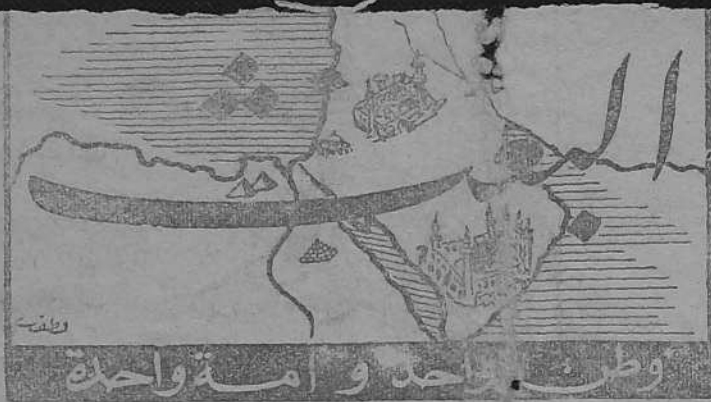 البعث
وطن واحد و أمة واحدة